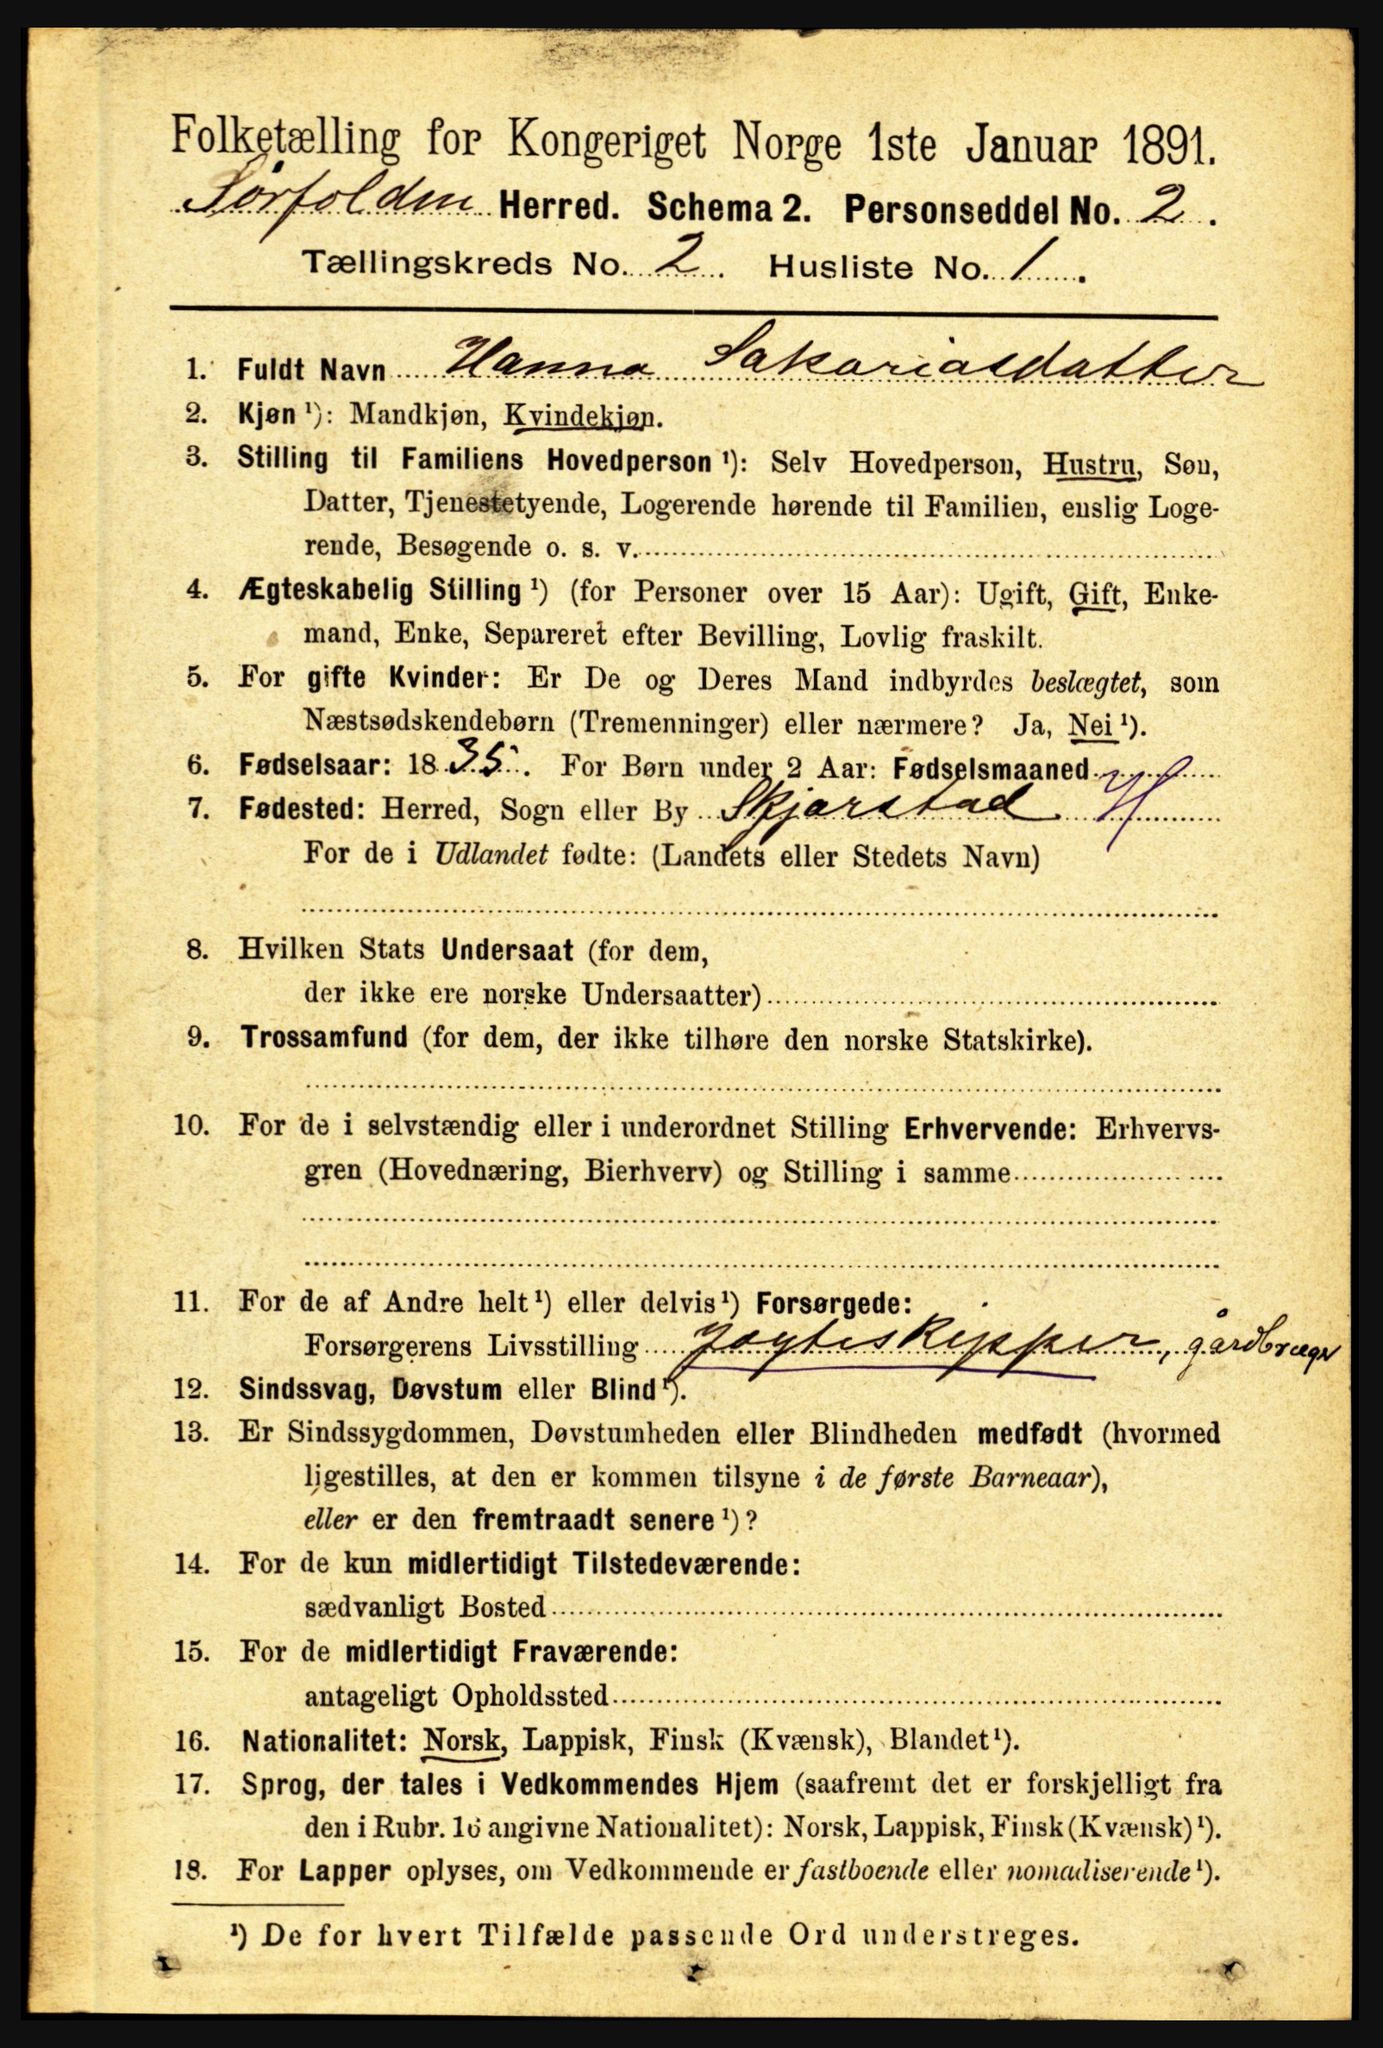 Folketælling for Kongeriget Norge 1ste Januar 1891.
Sørfolden Herred. Schema 2. Personseddel No. 2.
Tællingskreds No. 2. Husliste No. 1.
1. Fuldt Navn Hanna Sakariasdatter
2. Kjøn ¹): Mandkjøn, Kvindekjøn.
3. Stilling til Familiens Hovedperson ¹): Selv Hovedperson, Hustru, Søn,
Datter, Tjenestetyende, Logerende hørende til Familien, enslig Loge-
rende, Besøgende o. s. v.
4. Ægteskabelig Stilling ¹) (for Personer over 15 Aar): Ugift, Gift, Enke-
mand, Enke, Separeret efter Bevilling, Lovlig fraskilt.
5. For gifte Kvinder: Er De og Deres Mand indbyrdes beslægtet, som
Næstsødskendebørn (Tremenninger) eller nærmere? Ja, Nei ¹).
6. Fødselsaar: 1835. For Børn under 2 Aar: Fødselsmaaned
7. Fødested: Herred, Sogn eller By Skjærstad H
For de i Udlandet fødte: (Landets eller Stedets Navn)
8. Hvilken Stats Undersaat (for dem,
der ikke ere norske Undersaatter)
9. Trossamfund (for dem, der ikke tilhøre den norske Statskirke).
10. For de i selvstændig eller i underordnet Stilling Erhvervende: Erhvervs-
gren (Hovednæring, Bierhverv) og Stilling i samme
11. For de af Andre helt ¹) eller delvis ¹) Forsørgede:
Forsørgerens Livsstilling Jægteskipper, gårdbruger
12. Sindssvag, Døvstum eller Blind ¹).
13. Er Sindssygdommen, Døvstumheden eller Blindheden medfødt (hvormed
ligestilles, at den er kommen tilsyne i de første Barneaar),
eller er den fremtraadt senere ¹)?
14. For de kun midlertidigt Tilstedeværende:
sædvanligt Bosted
15. For de midlertidigt Fraværende:
antageligt Opholdssted
16. Nationalitet: Norsk, Lappisk, Finsk (Kvænsk), Blandet ¹).
17. Sprog, der tales i Vedkommendes Hjem (saafremt det er forskjelligt fra
den i Rubr. 16 angivne Nationalitet): Norsk, Lappisk, Finsk (Kvænsk) ¹).
18. For Lapper oplyses, om Vedkommende er fastboende eller nomadiserende ¹).
¹) De for hvert Tilfælde passende Ord understreges.